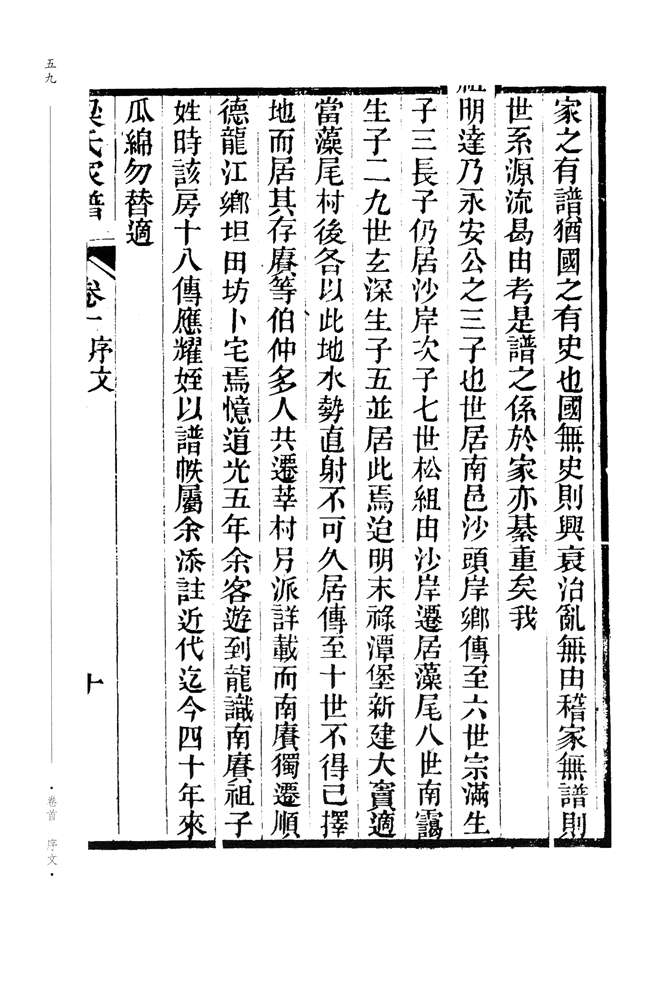 家之有譜猶國之有史也國無史則興衰治亂無由稽家無譜則
世系源流曷由考是譜之係於家亦綦重矣我
祖明達乃永安公之三子也世居南邑沙頭岸鄉傳至六世宗滿生
子三長子仍居沙岸次子七世松組由沙岸遷居藻尾八世南靄
生子二九世玄深生子五並居此焉迨明末祿潭堡新建大竇適
當藻尾村後各以此地水勢直射不可久居傳至十世不得已擇
地而居其存賡等伯仲多人共遷莘村另派詳載而南賡獨遷順
德龍江鄉坦田坊卜宅焉憶道光五年余客遊到龍識南賡祖子
姓時該房十八傳應耀姪以譜帙屬余添註近代迄今四十年來
瓜綿勿替適
梁氏家譜
卷一序文
十
五九
·卷首 序文·